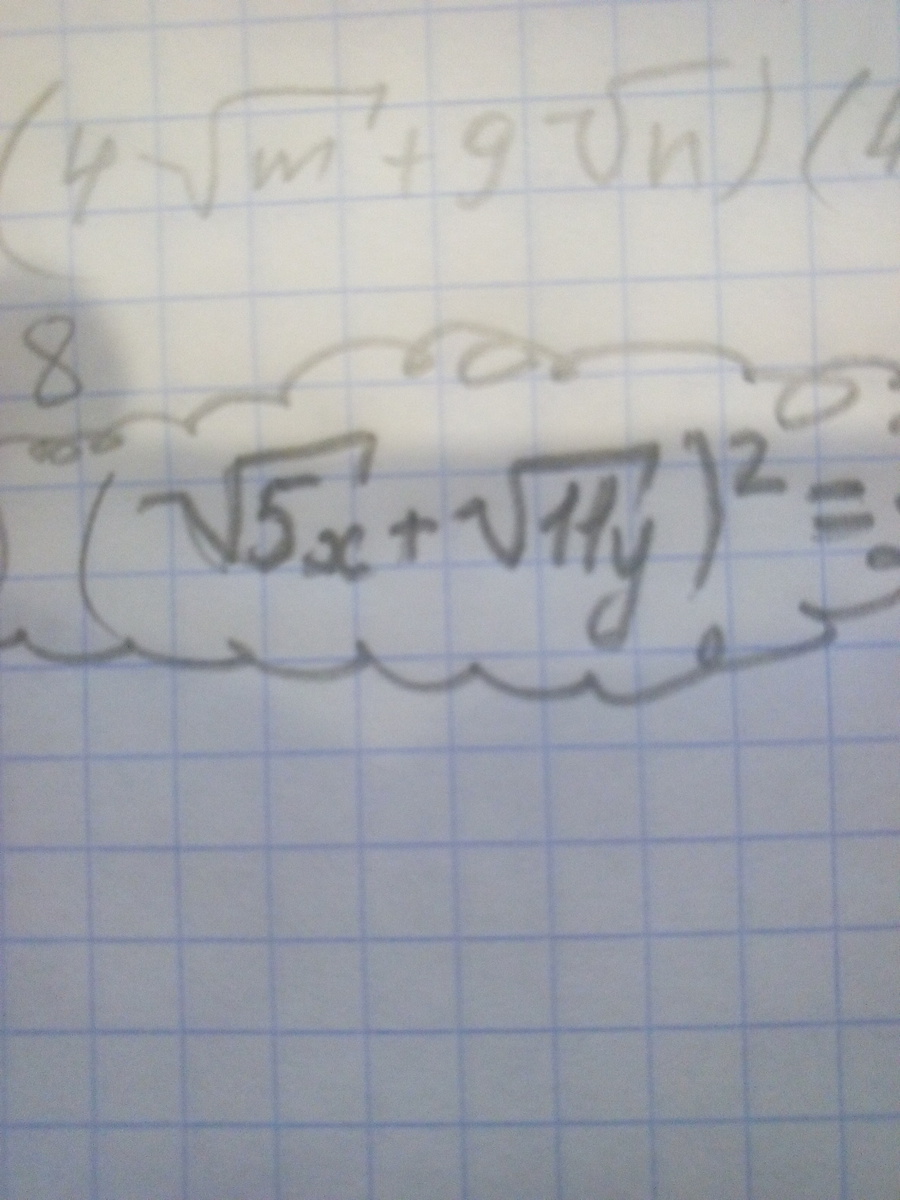 (4√m + 9√n)(4
8
(√5x + √11y)² =